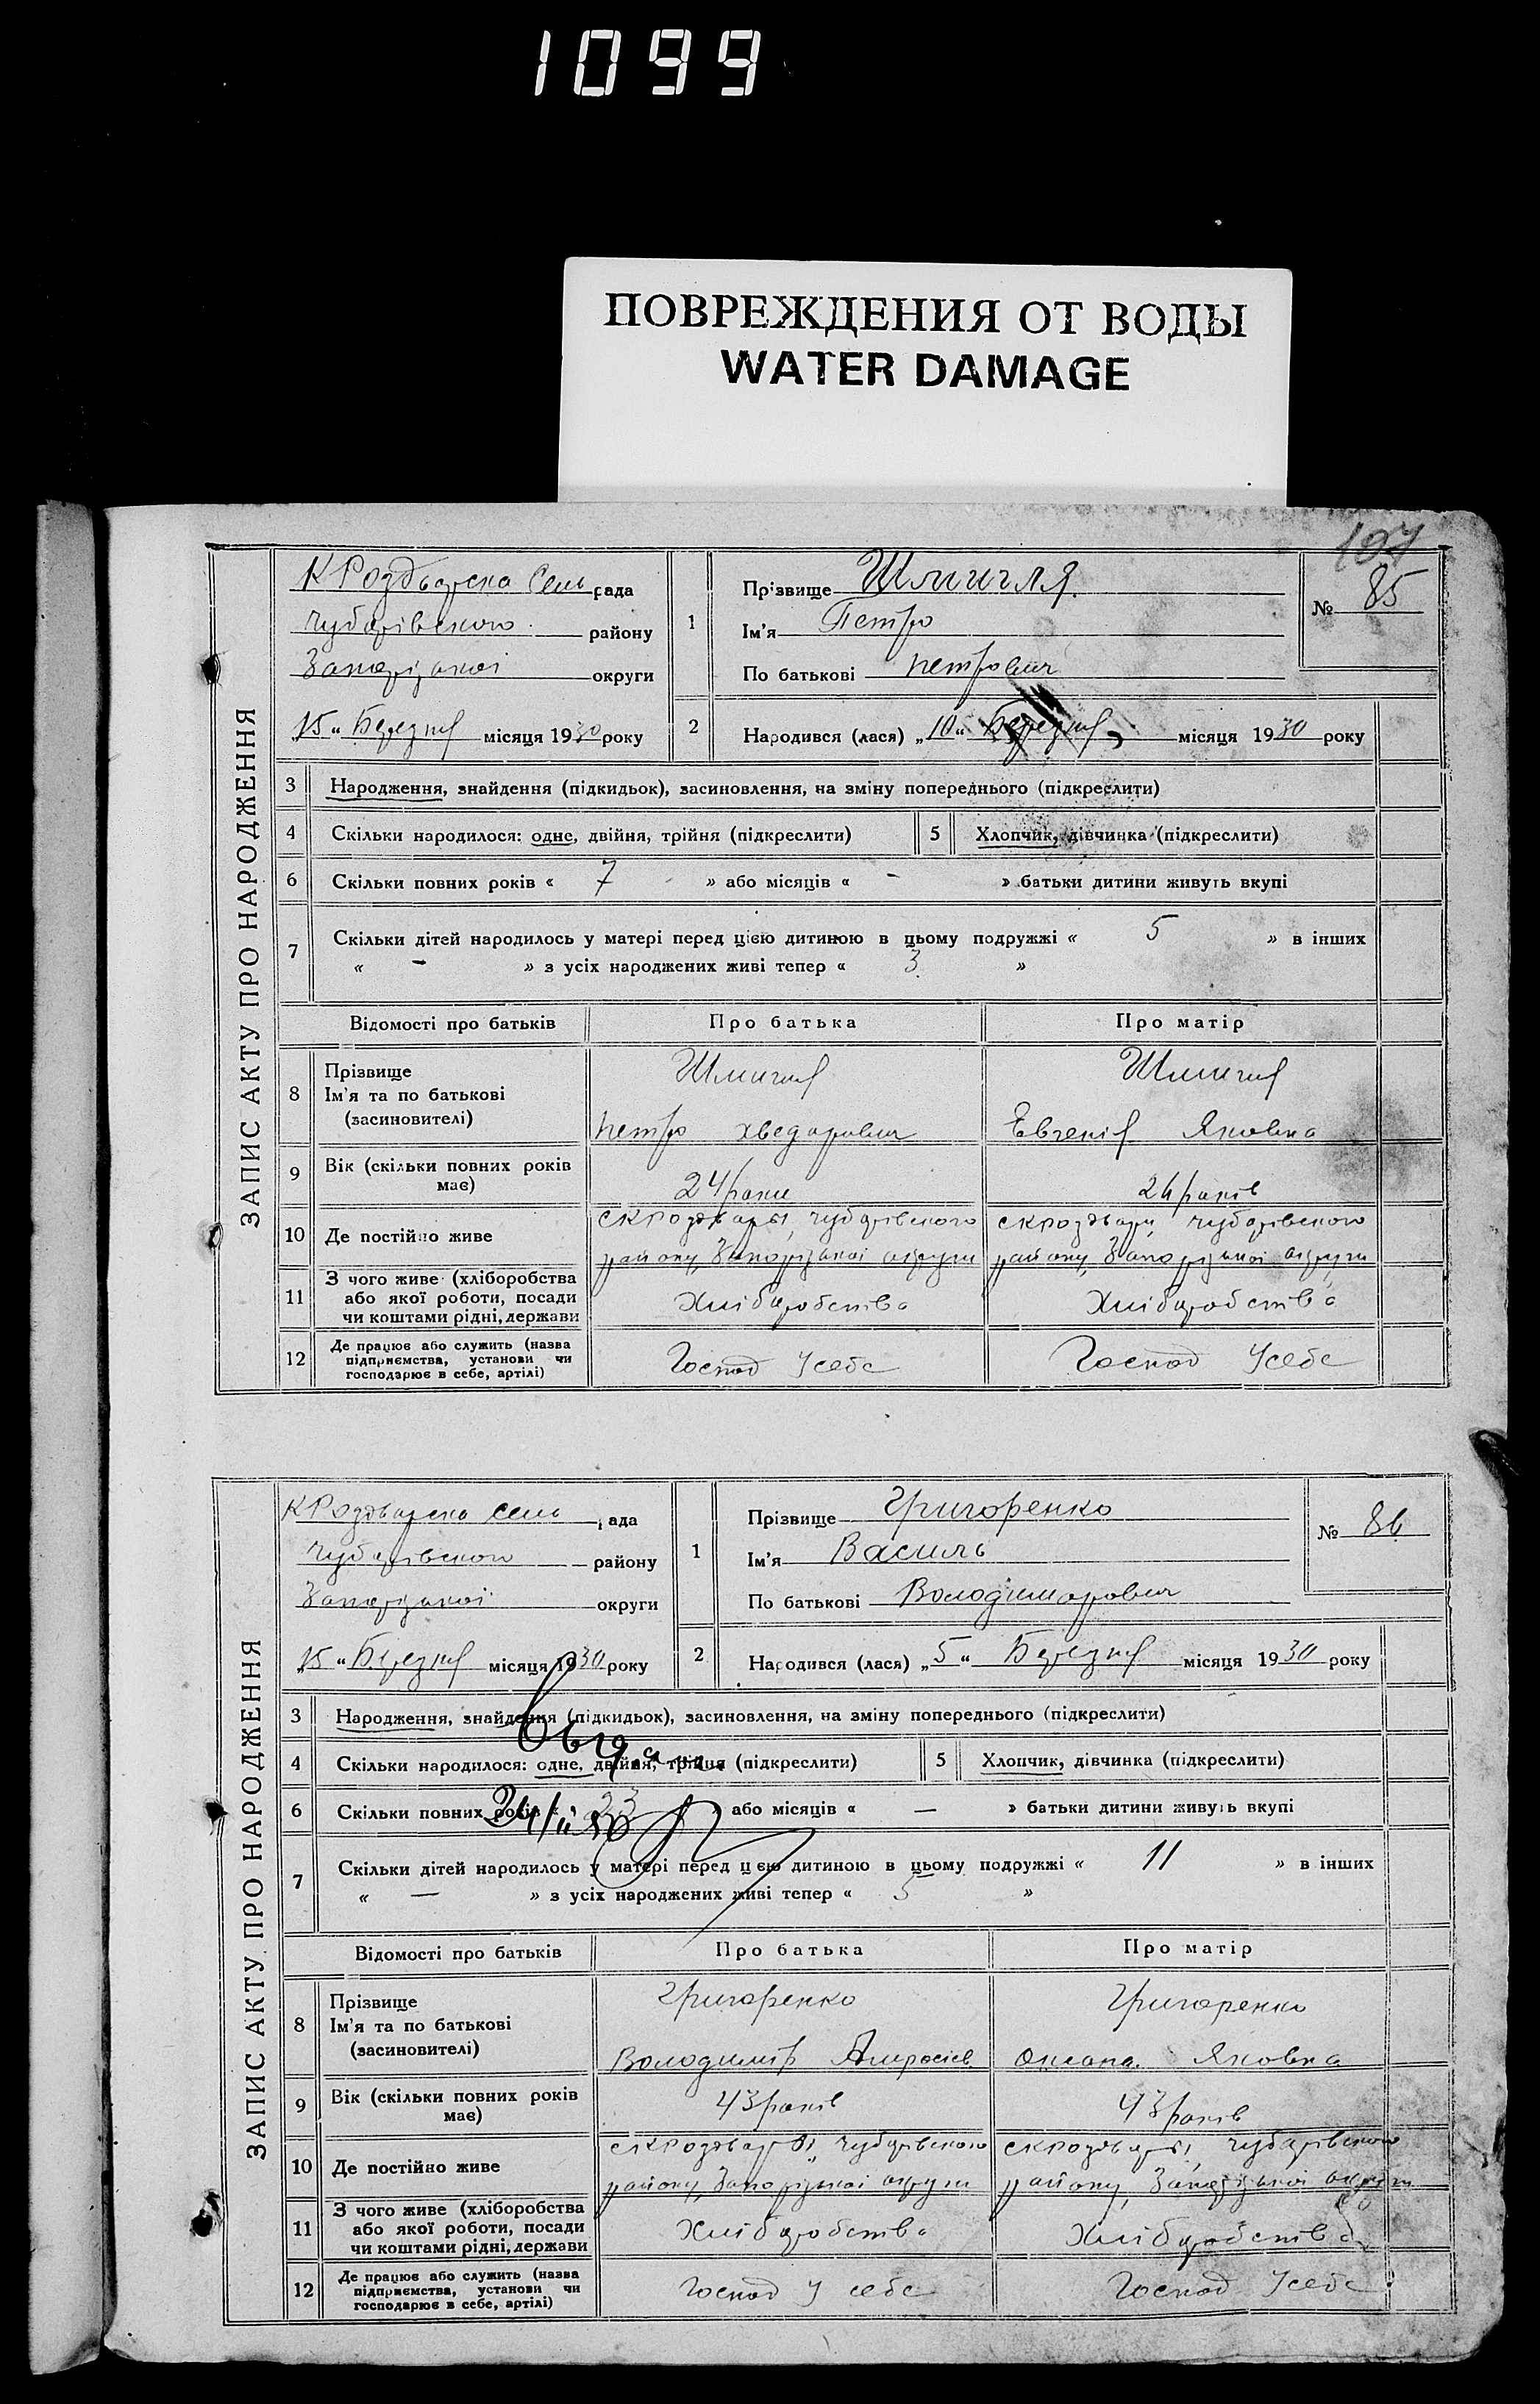 1099
ПОВРЕЖДЕНИЯ ОТ ВОДЫ
WATER DAMAGE
107
ЗАПИС АКТУ ПРО НАРОДЖЕННЯ
КРоздорска Сель рада
Чубарівського району
Запорізької округи
„15“ Березня місяця 1930 року
1
Прізвище Шмигля
Ім'я Петро
По батькові Петрович
№ 85
2
Народився (лася) „10“ Березня місяця 1930 року
3 Народження, знайдення (підкидьок), засиновлення, на зміну попереднього (підкреслити)
4 Скільки народилося: одне, двійня, трійня (підкреслити) 5 Хлопчик, дівчинка (підкреслити)
6 Скільки повних років « 7 » або місяців « - » батьки дитини живуть вкупі
7 Скільки дітей народилось у матері перед цією дитиною в цьому подружжі « 5 » в інших
« - » з усіх народжених живі тепер « 3 »
Відомості про батьків Про батька Про матір
8 Прізвище
Ім'я та по батькові
(засиновителі)
Шмигля
Петро Хведорович
Шмигля
Евгенія Яковвна
9 Вік (скільки повних років
має)
24 роки
26 років
10 Де постійно живе
Чубарівського
району, Запорізької округи
Чубарівського
району, Запорізької округи
11 З чого живе (хліборобства
або якої роботи, посади
чи коштами рідні, держави
Хліборобства
Хліборобства
12 Де працює або служить (назва
підприємства, установи чи
господарює в себе, артілі)
Господ Усебе
Господ Усебе
ЗАПИС АКТУ ПРО НАРОДЖЕННЯ
КРоздорска Сель рада
Чубарівського району
Запорізької округи
„15“ Березня місяця 1930 року
1
Прізвище Григоренко
Ім'я Василь
По батькові Володимирович
№ 86
2
Народився (лася) „5“ Березня місяця 1930 року
3 Народження, знайдення (підкидьок), засиновлення, на зміну попереднього (підкреслити)
4 Скільки народилося: одне, двійня, трійня (підкреслити) 5 Хлопчик, дівчинка (підкреслити)
6 Скільки повних років « 23 » або місяців « — » батьки дитини живуть вкупі
7 Скільки дітей народилось у матері перед цією дитиною в цьому подружжі « 11 » в інших
« — » з усіх народжених живі тепер « 5 »
Відомості про батьків Про батька Про матір
8 Прізвище
Ім'я та по батькові
(засиновителі)
Григоренко
Володимір
Григоренко
Оксана Яковвна
9 Вік (скільки повних років
має)
43 років
43 років
10 Де постійно живе
Чубарівського
району, Запорізької округи
Чубарівського
району, Запорізької округи
11 З чого живе (хліборобства
або якої роботи, посади
чи коштами рідні, держави
Хліборобства
Хліборобства
12 Де працює або служить (назва
підприємства, установи чи
господарює в себе, артілі)
Господ У себе
Господ Усебе